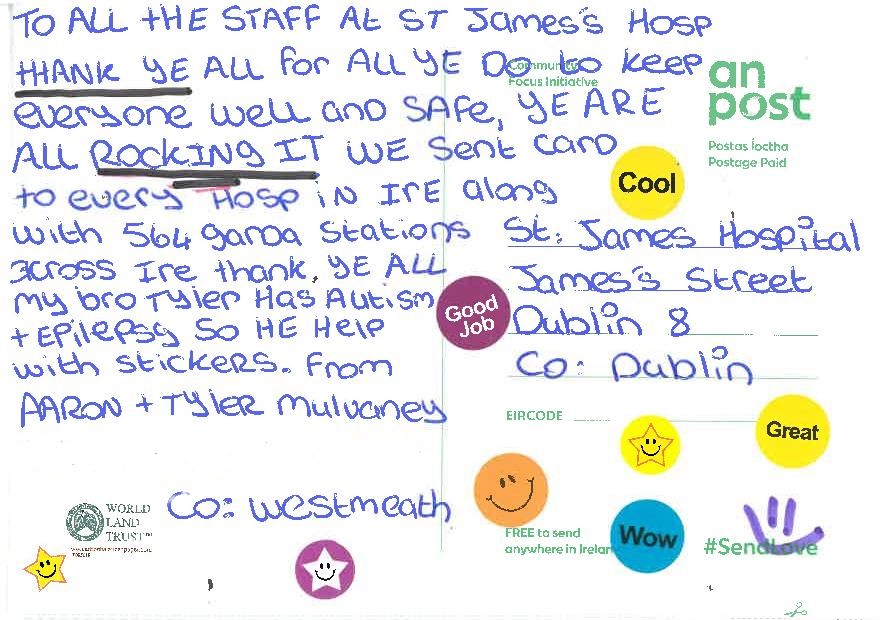 TO ALL tHE STAFF At ST James's Hosp
tHANK YE ALL for ALL YE DO to keep
everyone well and SAFe, YE ARE
ALL ROCKING IT WE Sent Card
to every Hosp iN IrE along
with 564 garda Stations
across Ire thank. YE ALL
my bro TYler Has AUtism
+ Epilepsy So HE Help
with stickers. From
AARON + TYLER mulvaney
Co: westmeath
Community
Focus Initiative
an
post
Postas Íoctha
Postage Paid
Cool
St: James Hospital
James's Street
Dublin 8
Co: Dublin
Good
Job
EIRCODE
Great
Wow
FREE to send
anywhere in Irelan
#SendLove
WORLD
LAND
TRUST